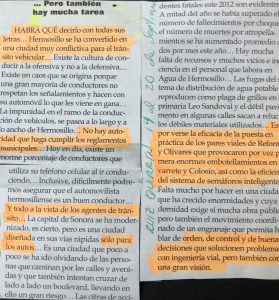 ... Pero también
hay mucha tarea
HABRÁ QUE decirlo con todas sus
letras... Hermosillo se ha convertido en
una ciudad muy conflictiva para el trán-
sito vehicular... Existe la cultura de con-
ducir a la ofensiva y no a la defensiva...
Existe un caos que se origina porque
una gran mayoría de conductores no
respetan los señalamientos y hacen con
su automóvil lo que les viene en gana...
La impunidad en el ramo de la conduc-
ción de vehículos, se pasea a lo largo y a
lo ancho de Hermosillo... No hay auto-
ridad que haga cumplir los reglamentos
municipales... Hoy en día, existe un
enorme porcentaje de conductores que
utiliza su teléfono celular al ir condu-
ciendo... Inclusive, difícilmente podre-
mos asegurar que el automovilista
hermosillense es un buen conductor...
Y todo a la vista de los agentes de trán-
sito... La capital de Sonora se ha moder-
nizado, es cierto, pero es una ciudad
diseñada en sus vías rápidas sólo para
los autos... Es una ciudad que poco a
poco se ha ido olvidando de las perso-
nas que caminan por las calles y aveni-
das y que también intentan cruzar de
lado a lado un boulevard, llevando en
ello un gran riesgo... Las cifras de acci-
dentes fatales este 2012 son evidentes
A mitad del año se había superado
número de fallecimientos por choques
el número de muertes por atropella-
mientos se ha aumentado
dos por mes este año... Hay mucha
falta de recursos y muchos vicios e in-
ciencia en el personal que labora en
Agua de Hermosillo... Las fugas del
tema de distribución de agua potable
reproducción como plaga de grillos en
primaria Leo Sandoval y el débil pavi-
mento en algunas calles sacan a relucir
los débiles materiales utilizados... Es
por verse la eficacia de la puesta en
práctica de los pares viales de Reforma
y Olivares que provocaron por vez pri-
mera enormes embotellamientos en
varrete y Colosio, así como la eficiencia
del sistema de semáforos inteligentes
Falta mucho por hacer en una ciudad
que ha crecido enormidades y cuya
dernidad exige sí mucha obra pública
pero también el movimiento coordi-
nado de un engranaje que permita
blar de orden, de control y de buenas
decisiones que solucionen problemas
con ingeniería vial, pero también con
una gran visión.